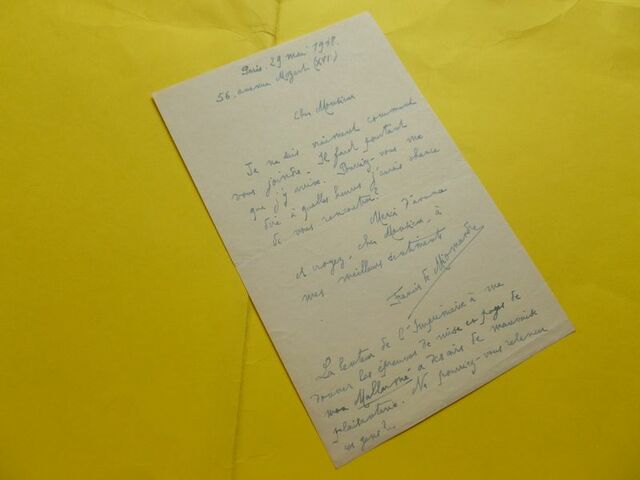 Paris. 29 mai 1918.
56. avenue Mozart (XVIe)
Cher Monsieur
Je ne sais vraiment comment
vous joindre. Il faut pourtant
que j'y arrive. Pourriez-vous me
dire à quelles heures j'aurais chance
de vous rencontrer?
Merci d'avance
et croyez, cher Monsieur, à
mes meilleurs sentiments
Francis de Miomandre
La lenteur de l'Imprimerie à me
donner les épreuves de mise en pages de
mon Mallarmé a des airs de mauvaise
plaisanterie. Ne pourriez-vous relancer
ces gens?